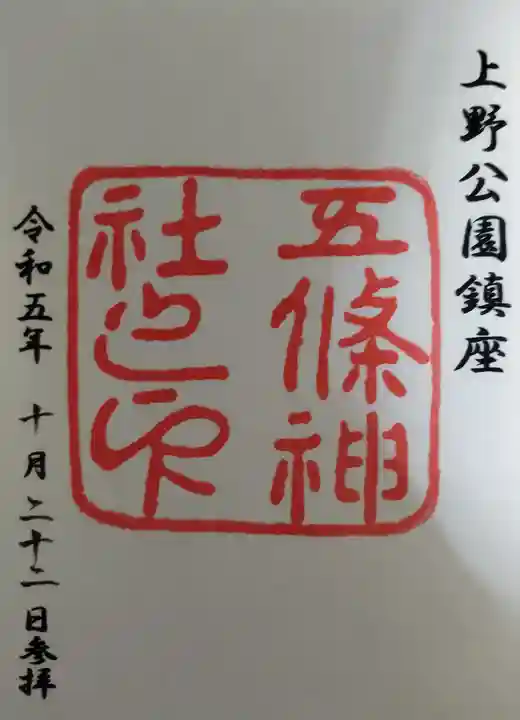 上野公園鎮座
五條神
社之印
令和五年 十月二十二日参拝